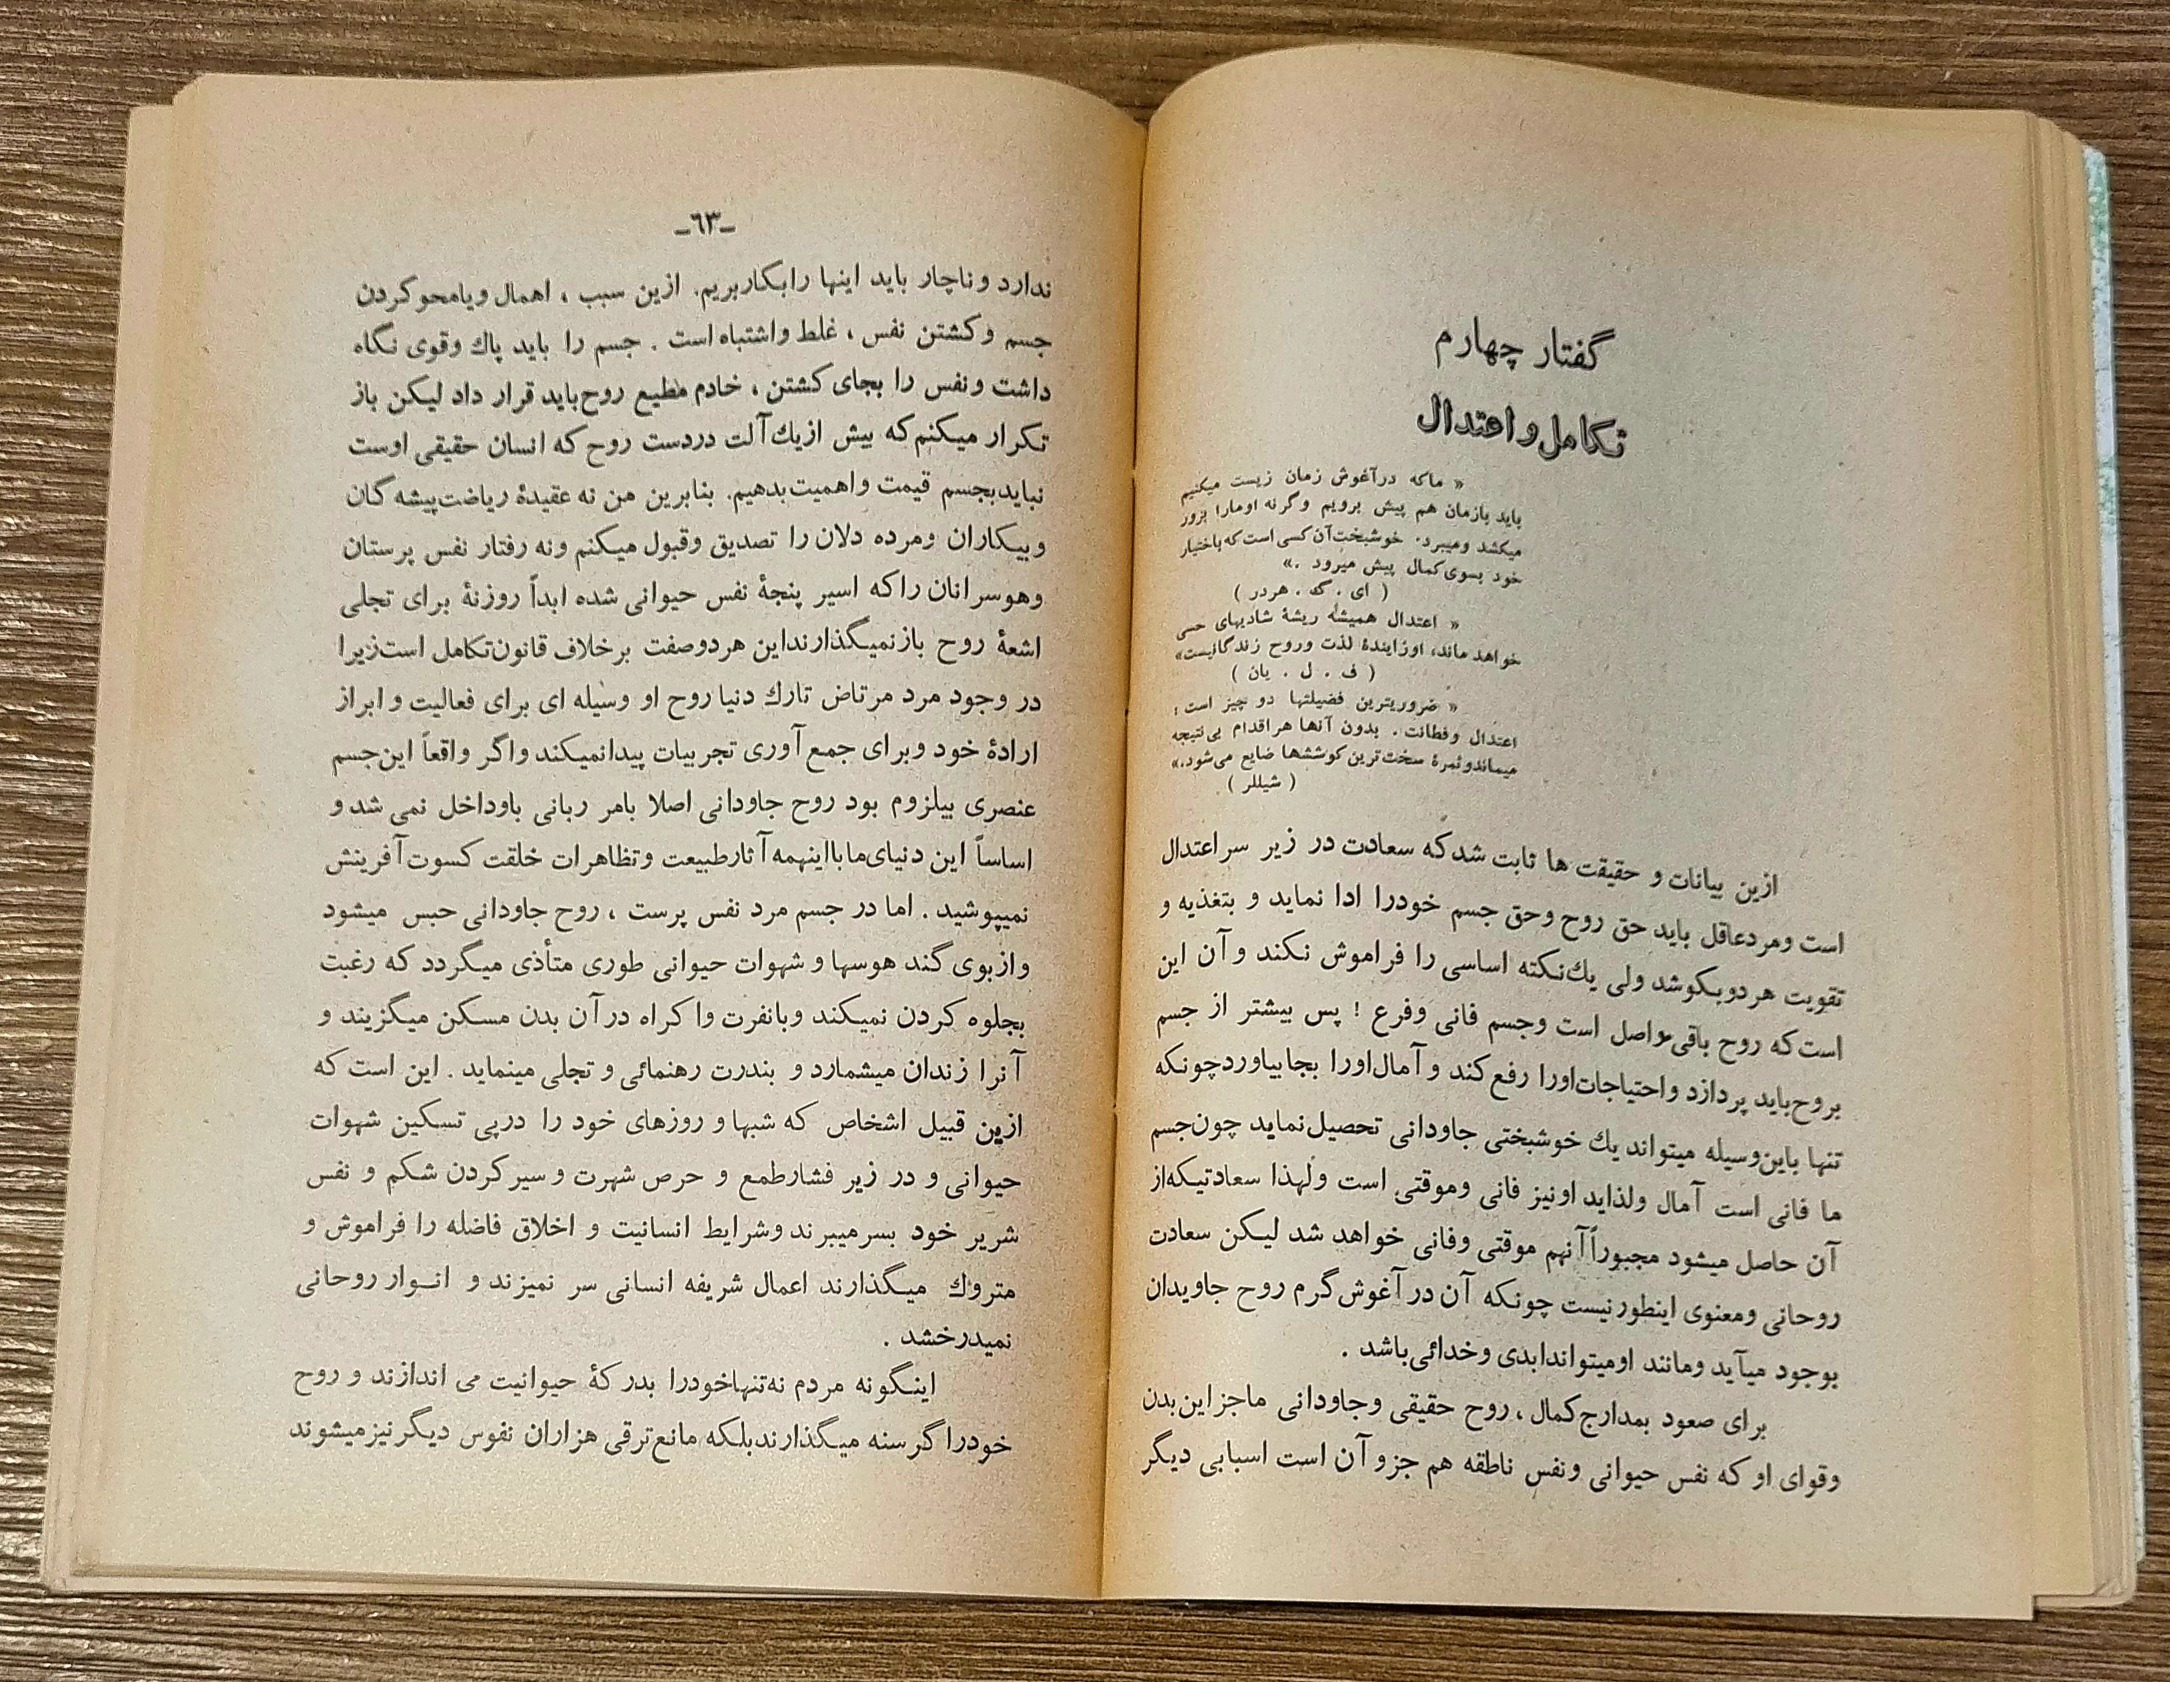 گفتار چهارم
تکامل و اعتدال
« ماکه در آغوش زمان زیست میکنیم
باید بازمان هم پیش برویم وگرنه اومارا بزور
میکشد ومیبرد. خوشبخت آن کسی است که باختیار
خود بسوی کمال پیش میرود .»
( ای . گ . هردر )
« اعتدال همیشه ریشهٔ شادیهای حسی
خواهد ماند، اوزایندهٔ لذت وروح زندگانیست»
( ف . ل . یان )
« ضروریترین فضیلتها دو چیز است :
اعتدال وفطانت . بدون آنها هر اقدام بی نتیجه
میماند و ثمرهٔ سخت ترین کوششها ضایع می شود.»
( شیللر )
ازین بیانات و حقیقت ها ثابت شد که سعادت در زیر سر اعتدال
است ومردعاقل باید حق روح وحق جسم خودرا ادا نماید و بتغذیه و
تقویت هردوبکوشد ولی یك نکته اساسی را فراموش نکند و آن این
است که روح باقی واصل است وجسم فانی وفرع ! پس بیشتر از جسم
بروح باید پردازد واحتیاجات اورا رفع کند و آمال اورا بجا بیاورد چونکه
تنها باین وسیله میتواند یك خوشبختی جاودانی تحصیل نماید چون جسم
ما فانی است آمال ولذاید اونیز فانی وموقتی است ولهذا سعادتیکه از
آن حاصل میشود مجبوراً آنهم موقتی وفانی خواهد شد لیکن سعادت
روحانی ومعنوی اینطور نیست چونکه آن در آغوش گرم روح جاویدان
بوجود میآید ومانند اومیتواند ابدی وخدائی باشد .
برای صعود بمدارج کمال ، روح حقیقی وجاودانی ماجز این بدن
وقوای او که نفس حیوانی ونفس ناطقه هم جزو آن است اسبابی دیگر
-٦٣-
ندارد وناچار باید اینها رابکاربریم. ازین سبب ، اهمال ویامحو کردن
جسم وکشتن نفس ، غلط واشتباه است . جسم را باید پاك وقوی نگاه
داشت ونفس را بجای کشتن ، خادم مطیع روح باید قرار داد لیکن باز
تکرار میکنم که بیش از یك آلت دردست روح که انسان حقیقی اوست
نباید بجسم قیمت واهمیت بدهیم. بنابرین من نه عقیدهٔ ریاضت پیشه گان
وبیکاران ومرده دلان را تصدیق وقبول میکنم ونه رفتار نفس پرستان
وهوسرانان راکه اسیر پنجهٔ نفس حیوانی شده ابداً روزنهٔ برای تجلی
اشعهٔ روح بازنمیگذارند این هردوصفت برخلاف قانون تکامل است زیرا
در وجود مرد مرتاض تارك دنیا روح او وسیله ای برای فعالیت و ابراز
ارادهٔ خود وبرای جمع آوری تجربیات پیدانمیکند واگر واقعاً این جسم
عنصری بیلزوم بود روح جاودانی اصلا بامر ربانی باوداخل نمی شد و
اساساً این دنیای ما بااینهمه آثارطبیعت وتظاهرات خلقت کسوت آفرینش
نمیپوشید . اما در جسم مرد نفس پرست ، روح جاودانی حبس میشود
وازبوی گند هوسها و شهوات حیوانی طوری متأذی میگردد که رغبت
بجلوه کردن نمیکند وبانفرت واکراه در آن بدن مسکن میگزیند و
آنرا زندان میشمارد و بندرت رهنمائی و تجلی مینماید . این است که
ازین قبیل اشخاص که شبها و روزهای خود را درپی تسکین شهوات
حیوانی و در زیر فشارطمع و حرص شهرت و سیرکردن شکم و نفس
شریر خود بسرمیبرند وشرایط انسانیت و اخلاق فاضله را فراموش و
متروك میگذارند اعمال شریفه انسانی سر نمیزند و انوار روحانی
نمیدرخشد .
اینگونه مردم نه تنها خودرا بدرکهٔ حیوانیت می اندازند و روح
خودرا گرسنه میگذارند بلکه مانع ترقی هزاران نفوس دیگر نیز میشوند